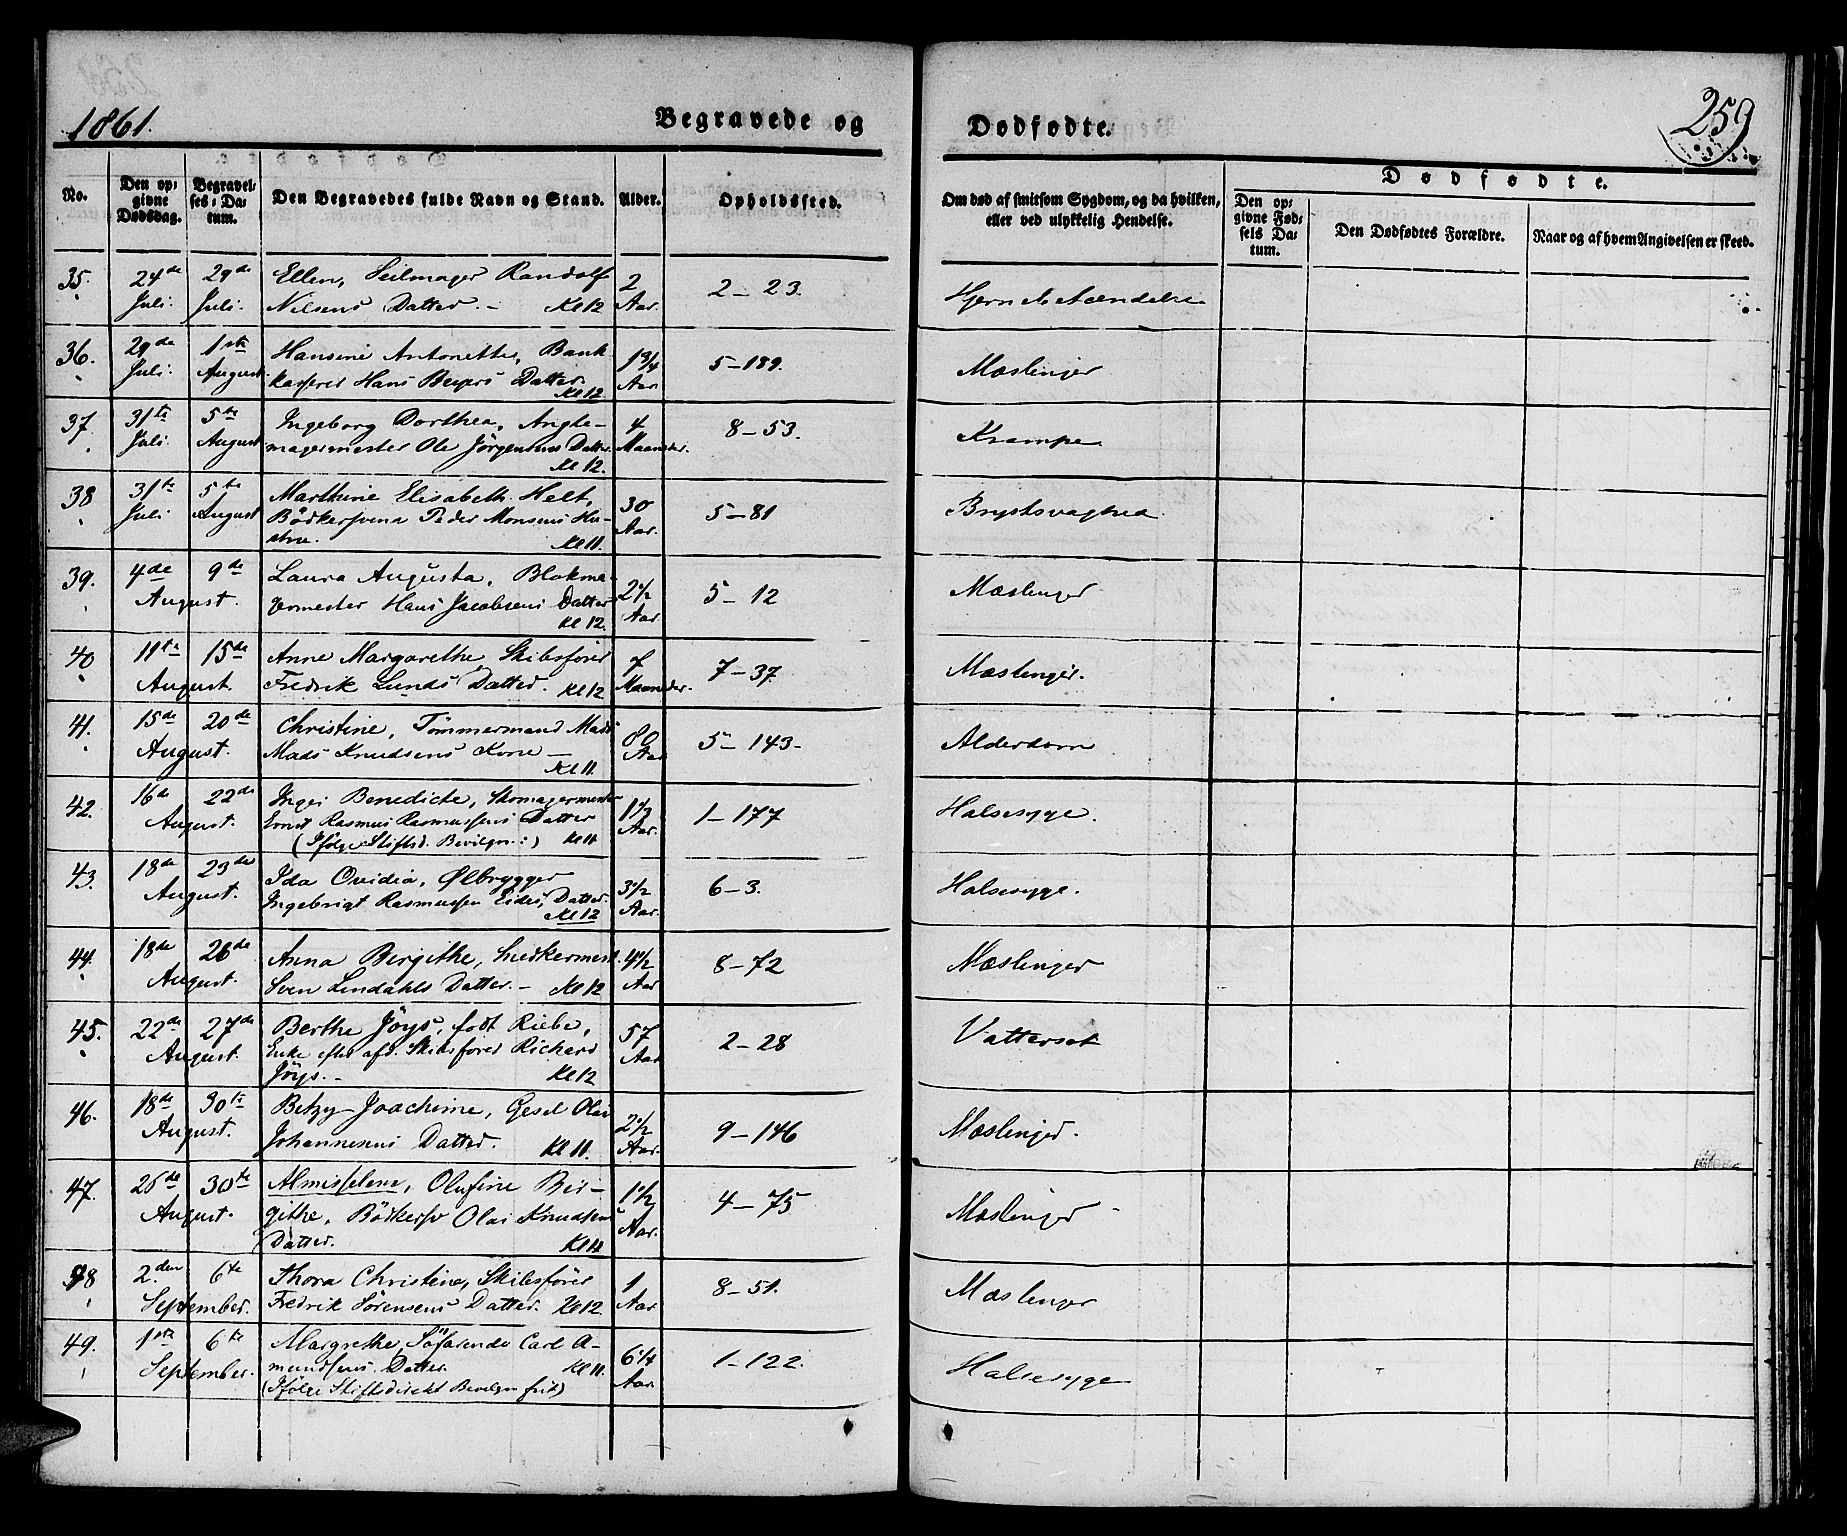 1861.
Begravede og
Dødfødte.
259
No.
Den op-
givne
Dødsdag.
Begravel-
ses-Da-
tum.
Den Begravedes fulde Navn og Stand.
Alder.
Opholdssted.
Om død af smitsom Sygdom, og da hvilken,
eller ved ulykkelig Hendelse.
Dødfødte.
Den op-
givne Fød-
sels Da-
tum.
Den Dødfødtes Forældre.
Naar og af hvem Angivelsen er skeed.
35. 24de Juli. 29de Juli. Ellen, Seilmager Randolf
Nilsens Datter. - Kl 12 2 Aar. 2-23. Hjernebetændelse
36. 29de Juli. 1ste August. Hansine Antonette, Bank
kasserer Hans Beyers Datter. Kl 12 1 3/4 Aar. 5-189. Mæslinger
37. 31te Juli. 5te August Ingeborg Dorthea,
magermester Ole Jörgensens Datter. Kl 12. 4 Maaneder. 8-53. Krampe
38 31te Juli 5te August Marthine Elisabeth Helt,
Bödkersvend Peder Monsens Hu-
stru. Kl 11. 30 Aar. 5-81 Brystsvaghed
39. 4de 9de August. Laura Augusta, Blokma-
germester Hans Jacobsens Datter Kl 12. 2 1/2 Aar. 5-12 Mæslinger
40 11te 15de August. Anne Margarethe, Skibsförer
Fredrik Lunds Datter. Kl 12 7 Maaneder. 7-37. Mæslinger.
41. 15de 20de August. Christine, Tömmermand Mads
Mads Knudsens Kone - Kl 11. 80 Aar 5-143- Alderdom
42. 16de 22de August. Inger Benedicte, Skomagermester
Ernst Rasmus Rasmussens Datter
(Ifölge Stiftsd. Bevilgn:) Kl 11 1 1/3 Aar. 1-177 Halsesyge.
43. 18de 23de August. Ida Ovidia, Ølbrygger
Ingebrigt Rasmussen Eides, Datter. Kl 12 3 1/2 Aar. 6-3. Halsesyge.
44. 18de 26de August. Anna Bergithe, Snedkermest.
Sven Lindahls Datter. - Kl 12 4 1/2 Aar 8-72 Mæslinger
45. 22de 27de August. Berthe Jöys, fodt Riebe,
Enke efter afd. Skibsförer Richard
Jöys. - Kl 12 57 Aar 2-28 Vattersot
46. 18de 30te August. Betzy Joachime, Gesel Olai
Johannesens Datter. Kl 11. 2 1/2 Aar. 9-146 Mæslinger.
47. 26de 30te August. Almisselem, Olufine Ber-
githe, Bödkersv Olai Knudsens
Datter. Kl 11 1 1/2 Aar. 4-75 Mæslinger
48 2den 6te September. Thora Christine, Skibsförer
Fredrik Sörensens Datter. Kl 12 1 Aar. 8-51. Mæslinger
49. 1ste 6te September. Margrethe, Söfarende Carl A-
mundsens Datter. Kl 11.
(Ifölge Stiftsdirekt Bevilgn frit) 6 1/4 Aar. 1-122. Halsesyge